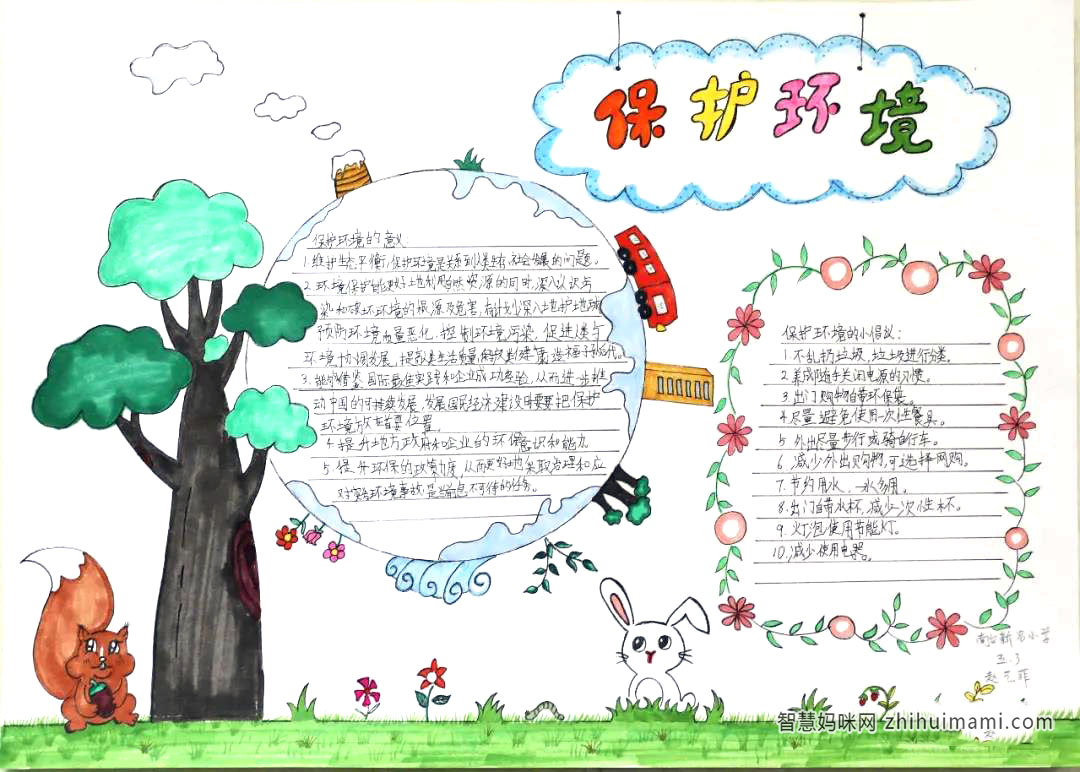 保护环境
保护环境的意义:
1.维护生态平衡,保护环境是关系到人类生存,社会发展的问题。
2.环境保护能更好地利用自然资源的同时,深入认识污
染和破坏环境的根源及危害,有计划深入地护地球
预防环境质量恶化,控制环境污染,促进人类与
环境协调发展,提高人类生活质量,
3.能够借鉴国际最佳实践和企业成功经验,从而进一步推
动中国的可持续发展,发展国民经济,建设要把保护
环境放在首要位置。
4.提升地方政府和企业的环保意识和能力
5.提升环保的政策力度,从而更好地采取治理和应
对突发环境事故,是当前不可待的任务。
保护环境的小倡议:
1.不乱扔垃圾,垃圾进行分类。
2.养成随手关闭电源的习惯。
3.出门购物自带环保袋。
4.尽量避免使用一次性餐具。
5.外出尽量步行或骑自行车。
6.减少外出购物,可选择网购。
7.节约用水,一水多用。
8.出门自带水杯,减少一次性杯。
9.灯泡使用节能灯。
10.减少使用电器。
南台新名小学
五.3
赵艺菲
智慧妈咪网 zhihuimami.com